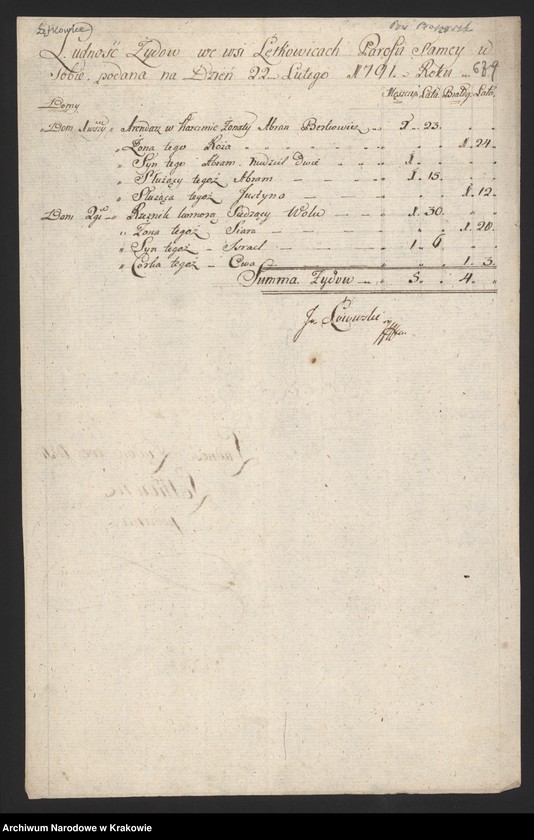 Łętkowice
Ludność Żydow we wsi Lętkowicach Parafii Samey w
Sobie podana na Dzień 22 Lutego 1791. Roku 689
Domy Męszczy. Lata. Białgł. Lata.
Dom 1wszy Arendarz w Karczmie Żonaty Abran Berkowicz 1 23.
Żona tego Roza 1. 24.
Syn tego Abram Niedziel Dwie 1.
Służący tegoż Abram 1. 15.
Służąca tegoż Justyna 1. 12.
Dom 2gi Rzeznik komorą Siedzący Wolu 1. 30.
Żona tegoż Siara 1. 20.
Syn tegoż Israel 1 6
Corka tegoż Ewa 1. 3.
Summa Żydow 5. 4.
Archiwum Narodowe w Krakowie